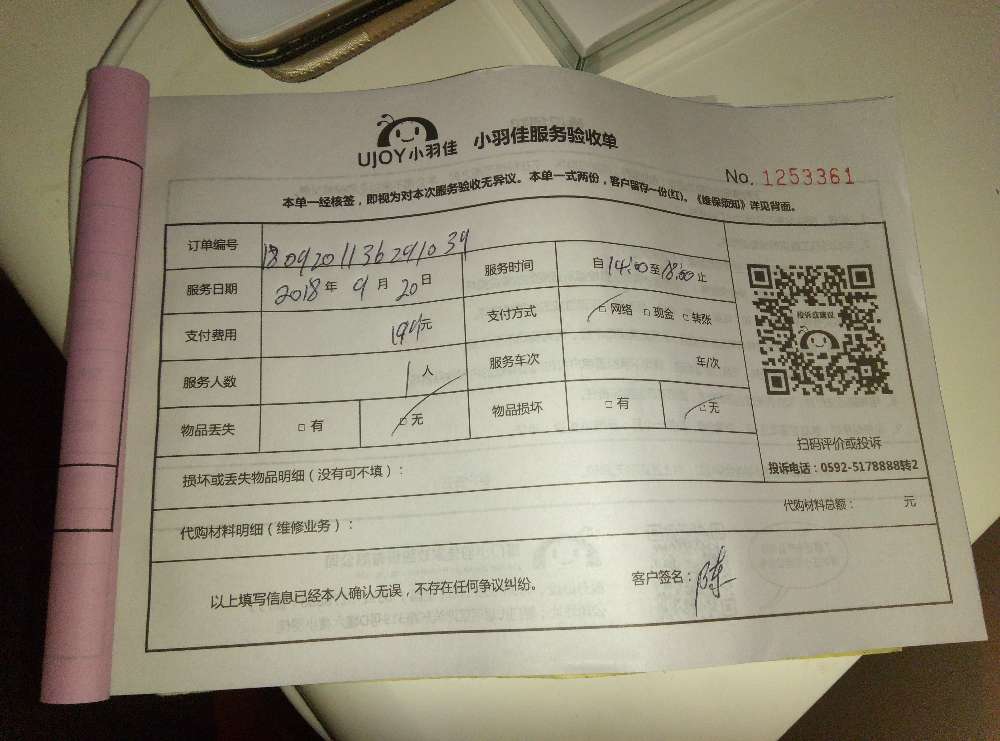 UJOY小羽佳 小羽佳服务验收单
No. 1253361
本单一经核签，即视为对本次服务验收无异议。本单一式两份，客户留存一份(红)。《维保须知》详见背面。
订单编号 1809201136291039
服务日期 2018年9月20日 服务时间 自14:00至18:00止
支付费用 元 支付方式 □网络 □现金 □转账
服务人数 1人 服务车次 车/次
物品丢失 □有 □无 物品损坏 □有 □无
投诉或建议
扫码评价或投诉
投诉电话：0592-5178888转2
损坏或丢失物品明细（没有可不填）：
代购材料明细（维修业务）： 代购材料总额： 元
以上填写信息已经本人确认无误，不存在任何争议纠纷。 客户签名：陈